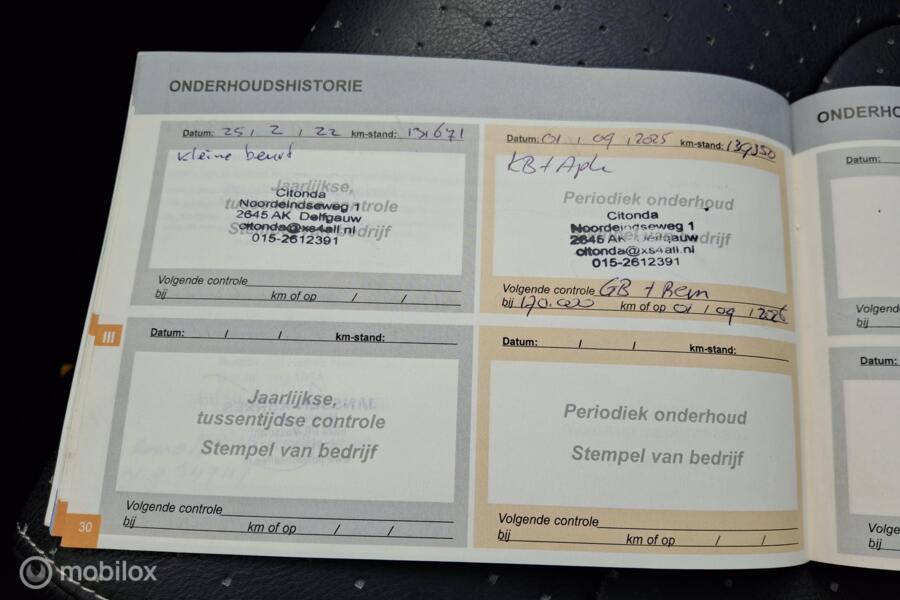 ONDERHOUDSHISTORIE
Datum: 25 / 2 / 22 km-stand: 131671
kleine beurt
Jaarlijkse,
tussentijdse controle
Stempel van bedrijf
Citonda
Noordeindseweg 1
2645 AK Delfgauw
citonda@xs4all.nl
015-2612391
Volgende controle
bij km of op / /
Datum: 01 / 09 / 2025 km-stand: 139350
KB + Apk
Periodiek onderhoud
Stempel van bedrijf
Citonda
Noordeindseweg 1
2645 AK Delfgauw
citonda@xs4all.nl
015-2612391
Volgende controle GB + Rem
bij 170.000 km of op 01 / 09 / 2026
III
Datum: / / km-stand:
Jaarlijkse,
tussentijdse controle
Stempel van bedrijf
Volgende controle
bij km of op / /
Datum: / / km-stand:
Periodiek onderhoud
Stempel van bedrijf
Volgende controle
bij km of op / /
30
ONDERHO
Datum:
Volgende
bij
Datum:
Volge
bij
mobilox